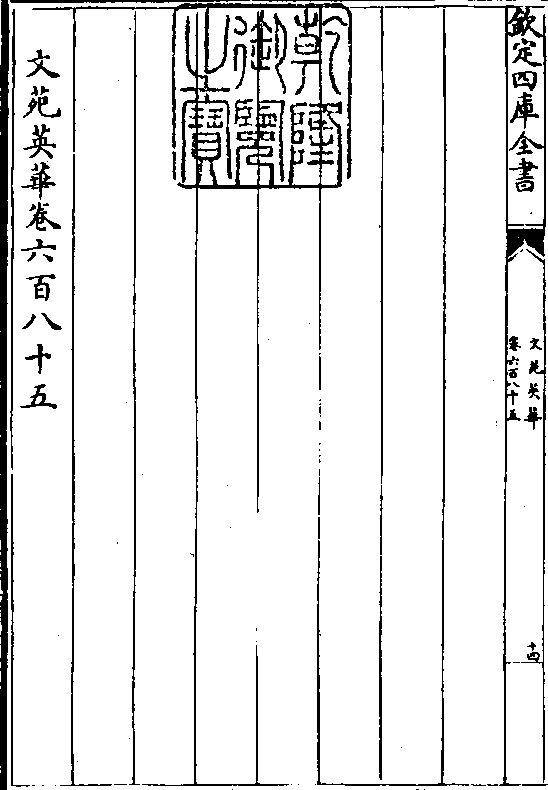 欽定四庫全書
文苑英華
卷六百八十五
十四
乾隆
御覽
之寶
文苑英華卷六百八十五